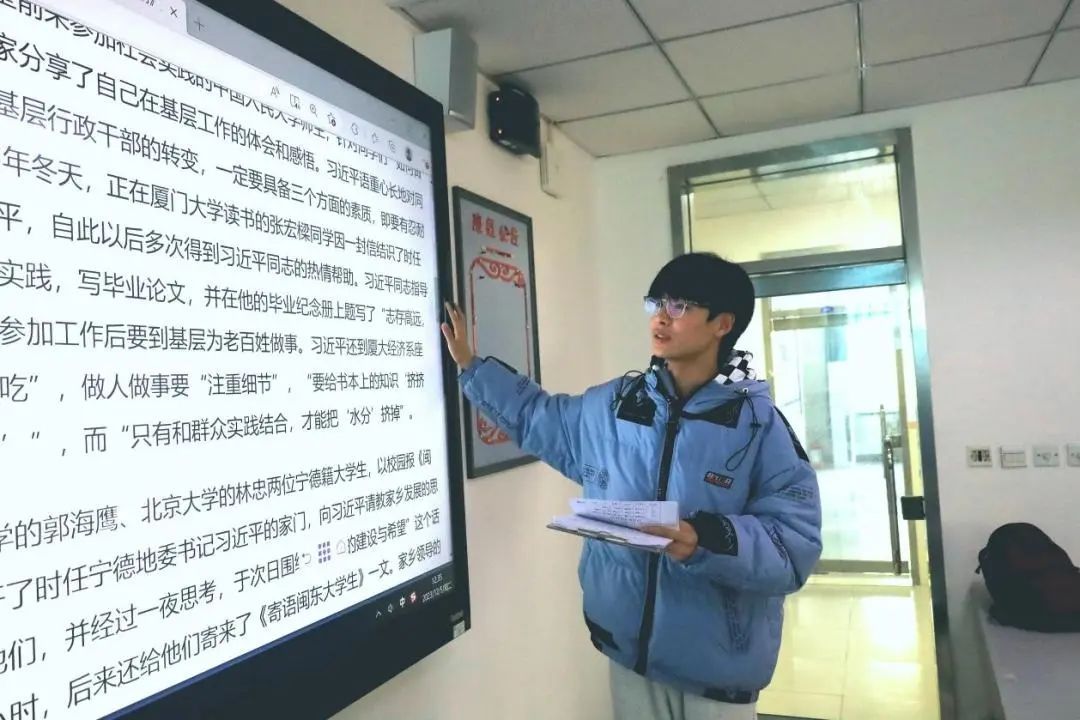 前来参加社会实践的中国人民大学师生，针对同学们“如何
家分享了自己在基层工作的体会和感悟。习近平语重心长地对同
基层行政干部的转变，一定要具备三个方面的素质，即要有忍耐
年冬天，正在厦门大学读书的张宏樑同学因一封信结识了时任
平，自此以后多次得到习近平同志的热情帮助。习近平同志指导
实践，写毕业论文，并在他的毕业纪念册上题写了“志存高远，
参加工作后要到基层为老百姓做事。习近平还到厦大经济系座
吃”，做人做事要“注重细节”，“要给书本上的知识‘挤挤
’”，而“只有和群众实践结合，才能把‘水分’挤掉”。
学的郭海鹰、北京大学的林忠两位宁德籍大学生，以校园报《闽
了时任宁德地委书记习近平的家门，向习近平请教家乡发展的思
他们，并经过一夜思考，于次日围绕
的建设与希望”这个话
小时，后来还给他们寄来了《寄语闽东大学生》一文。家乡领导的
中
12:35